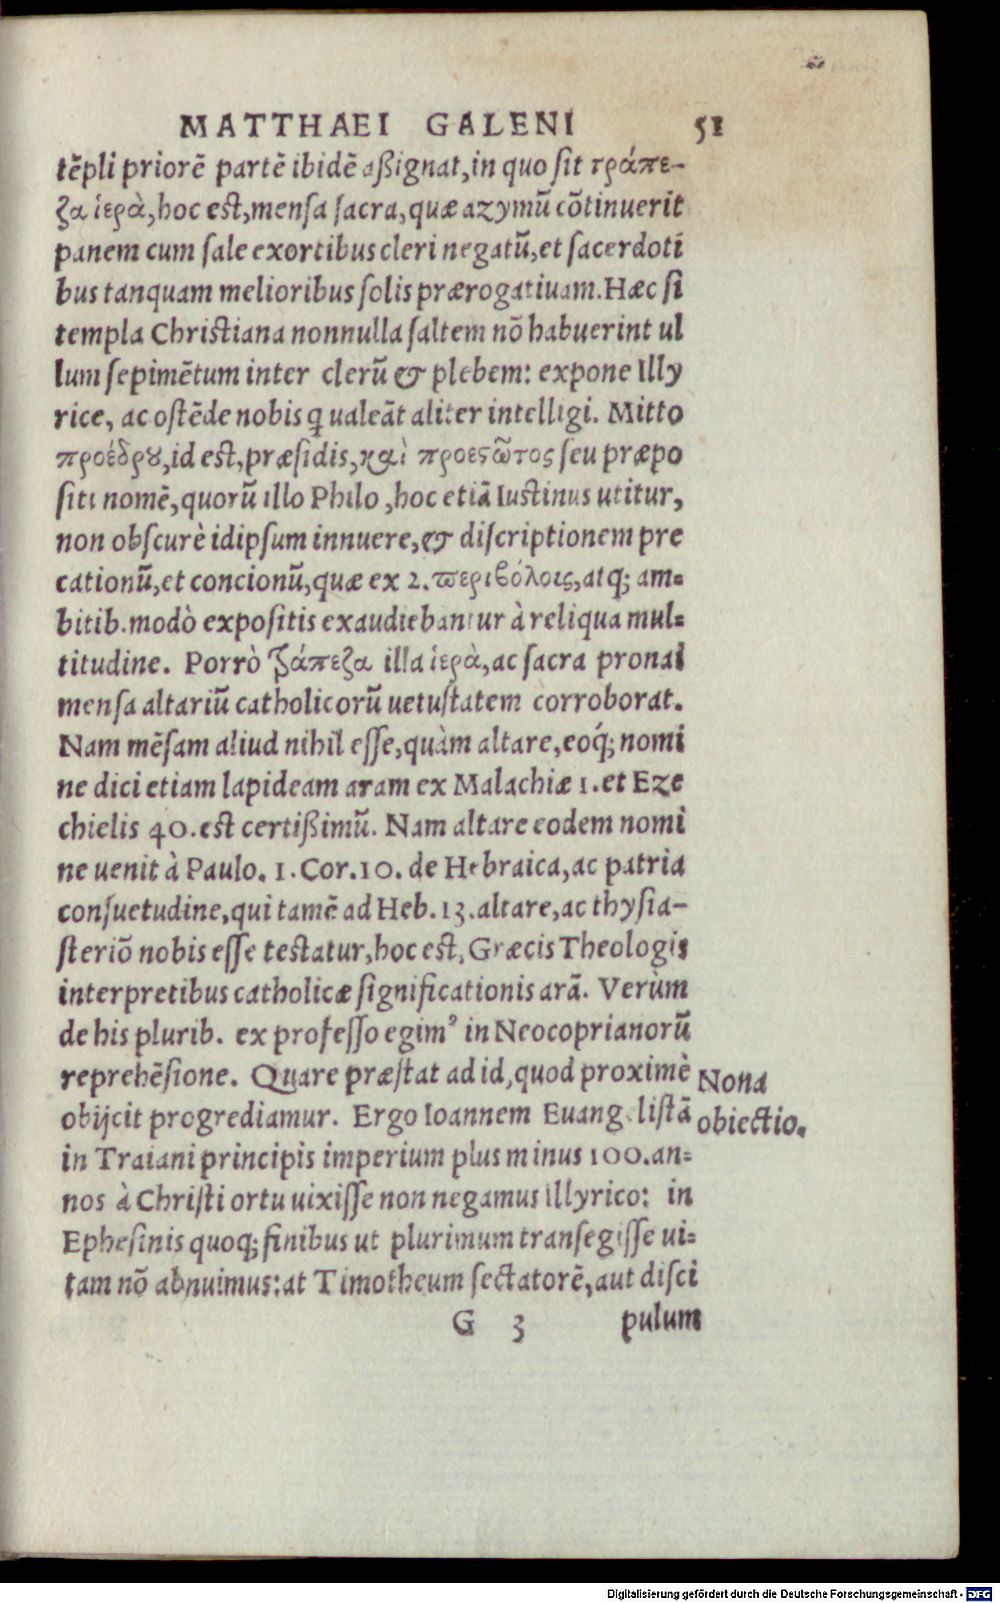 MATTHAEI GALENI 51
tẽpli priorẽ partẽ ibidẽ aßignat, in quo ſit τράπε-
ζα ἱερὰ, hoc est, menſa ſacra, quæ azymũ cõtinuerit
panem cum ſale exortibus cleri negatũ, et ſacerdoti
bus tanquam melioribus ſolis prærogatiuam. Hæc ſi
templa Chriſtiana nonnulla ſaltem nõ habuerint ul
lum ſepimẽtum inter clerũ & plebem: expone Illy
rice, ac oſtẽde nobis ꝗ ualeãt aliter intelligi. Mitto
προέδρȣ, id est, præſidis, καὶ προεϛῶτος ſeu præpo
ſiti nomẽ, quorũ illo Philo, hoc etiã Iuſtinus utitur,
non obſcurè idipſum innuere, & diſcriptionem pre
cationũ, et concionũ, quæ ex 2. περιβόλοις, atq; am=
bitib. modò expoſitis exaudiebantur à reliqua mul=
titudine. Porrò τράπεζα illa ἱερὰ, ac ſacra pronai
menſa altariũ catholicorũ uetuſtatem corroborat.
Nam mẽſam aliud nihil eſſe, quàm altare, eoq́; nomi
ne dici etiam lapideam aram ex Malachiæ 1. et Eze
chielis 40. est certißimũ. Nam altare eodem nomi
ne uenit à Paulo. 1. Cor. 10. de Hebraica, ac patria
conſuetudine, qui tamẽ ad Heb. 13. altare, ac thyſia-
ſteriõ nobis eſſe teſtatur, hoc est, Græcis Theologis
interpretibus catholicæ ſignificationis arã. Verùm
de his plurib. ex profeſſo egimꝰ in Neocoprianorũ
reprehẽſione. Quare præſtat ad id, quod proximè
obijcit progrediamur. Ergo Ioannem Euangeliſtã
in Traiani principis imperium plus minus 100. an=
nos à Chriſti ortu uixiſſe non negamus Illyrico: in
Epheſinis quoq; finibus ut plurimum tranſegiſſe ui=
tam nõ abnuimus: at Timotheum ſectatorẽ, aut diſci
G 3 pulum
Nona
obiectio.
Digitalisierung gefördert durch die Deutsche Forschungsgemeinschaft - DFG